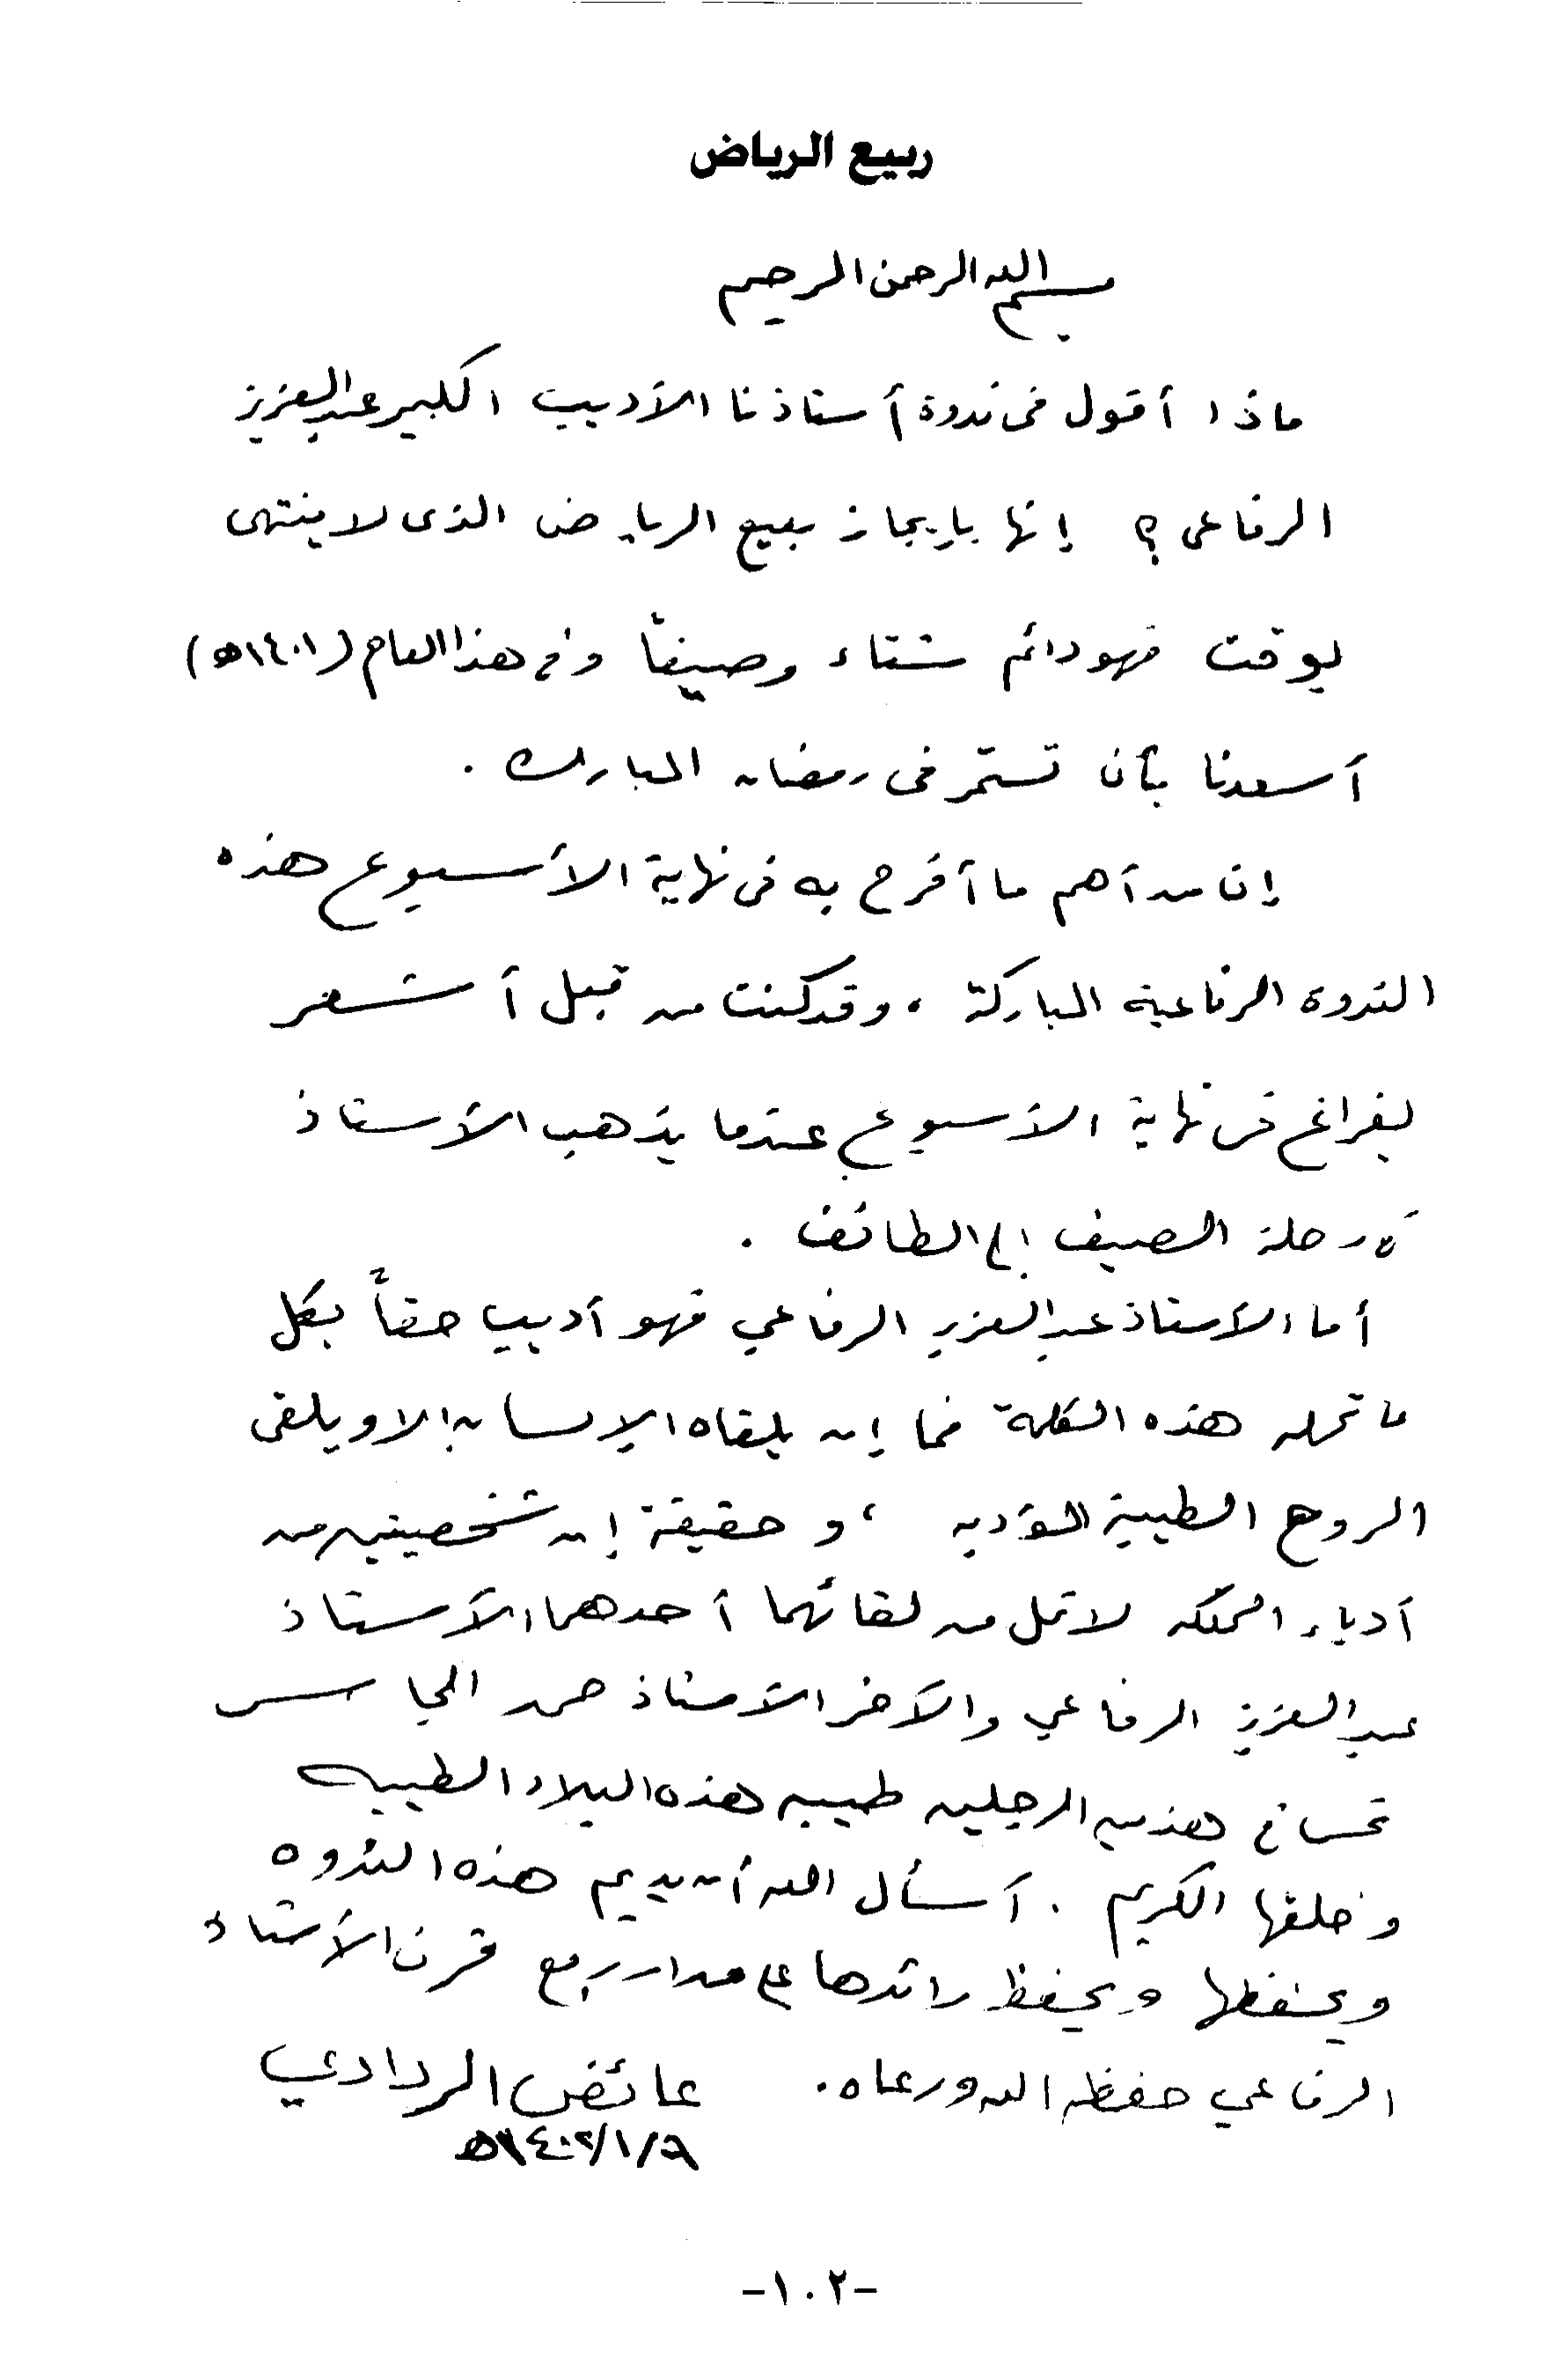 ربيع الرياض
بسم الله الرحمن الرحيم
ماذا أقول في ندوة أستاذنا الأديب الكبير عبدالعزيز
الرفاعي؟ إنها بإيجاز ربيع الرياض الذى لا ينتهى
بوقت فهو دائم شتاء وصيفاً وفي هذا العام (١٤٠١هـ)
أسعدنا بأن تستمر في رمضان المبارك .
إن من أهم ما أفرح به في نهاية الأسبوع هذه
الندوة الرفاعية المباركة ، وقد كنت من قبل أشعر
بفراغ في نهاية الأسبوع عندما يذهب الأستاذ
في رحلة الصيف إلى الطائف .
أما الأستاذ عبدالعزيز الرفاعي فهو أديب حقاً بكل
ما تحمله هذه الكلمة فما إن يلقاه الإنسان إلا ويلقى
الروح الطيبة المؤدبة ، وحقيقة إن شخصيتين من
أدباء المملكة لا تمل من لقائهما أحدهما الأستاذ
عبدالعزيز الرفاعي والآخر الأستاذ حمد الجاسر
تحس في هذين الرجلين طيبة هذه البلاد الطيبة
وخلقها الكريم . أسأل الله أن يديم هذه الندوة
ويحفظها ويحفظ رائدها على مدار ربع قرن الأستاذ
الرفاعي حفظه الله ورعاه .
عائض الردادي
١٤٠٢/١/٦هـ
-١٠٢-